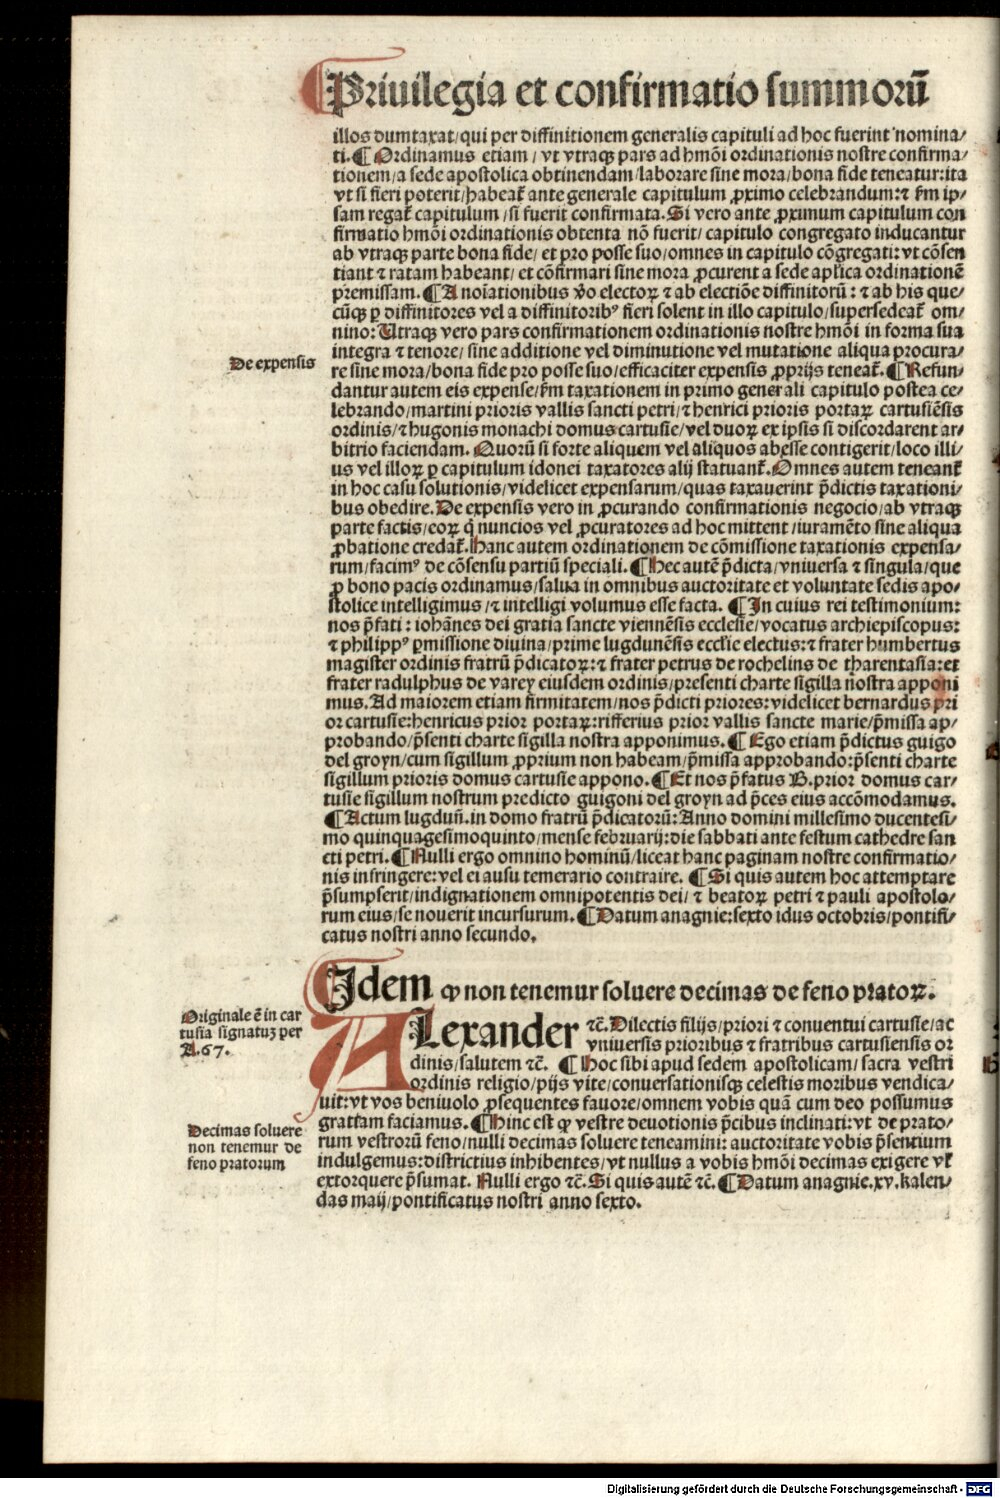 Priuilegia et confirmatio summorū
illos dumtaxat/qui per diffinitionem generalis capituli ad hoc fuerint nomina/
ti.¶Ordinamus etiam/vt vtraqꝫ pars ad hmōi ordinationis nostre confirma/
tionem/a sede apostolica obtinendam/laborare sine mora/bona fide teneatur:ita
vt si fieri poterit/habeat᷑ ante generale capitulum ꝓximo celebrandum:⁊ ẜm ip/
sam regat᷑ capitulum/si fuerit confirmata.Si vero ante ꝓximum capitulum con
firmatio hmōi ordinationis obtenta nō fuerit/capitulo congregato inducantur
ab vtraqꝫ parte bona fide/et pro posse suo/omnes in capitulo cōgregati:vt cōsen
tiant ⁊ ratam habeant/et cōfirmari sine mora ꝓcurent a sede apl̄ica ordinationē
premissam.¶A noīationibus v̄o electoꝝ ⁊ ab electiōe diffinitorū:⁊ ab his que/
cūqꝫ ꝑ diffinitores vel a diffinitoribꝰ fieri solent in illo capitulo/supersedeat᷑ om/
nino:Utraqꝫ vero pars confirmationem ordinationis nostre hmōi in forma sua
integra ⁊ tenore/sine additione vel diminutione vel mutatione aliqua procura/
De expensis
re sine mora/bona fide pro posse suo/efficaciter expensis ꝓprijs teneat᷑.¶Refun/
dantur autem eis expense/ẜm taxationem in primo generali capitulo postea ce/
lebrando/martini prioris vallis sancti petri/⁊ henrici prioris portaꝝ cartusiēsis
ordinis/⁊ hugonis monachi domus cartusie/vel duoꝝ ex ipsis si discordarent ar/
bitrio faciendam.Quorū si forte aliquem vel aliquos abesse contigerit/loco illi/
us vel illoꝝ ꝑ capitulum idonei taxatores alij statuant᷑.Omnes autem teneant᷑
in hoc casu solutionis/videlicet expensarum/quas taxauerint p̄dictis taxationi/
bus obedire.De expensis vero in ꝓcurando confirmationis negocio/ab vtraqꝫ
parte factis/eoꝝ q̇ nuncios vel ꝓcuratores ad hoc mittent/iuramēto sine aliqua
ꝓbatione credat᷑.Hanc autem ordinationem de cōmissione taxationis expensa/
rum/facimꝰ de cōsensu partiū speciali.¶Hec autē p̄dicta/vniuersa ⁊ singula/que
ꝓ bono pacis ordinamus/salua in omnibus auctoritate et voluntate sedis apo/
stolice intelligimus/⁊ intelligi volumus esse facta.¶In cuius rei testimonium:
nos p̄fati:iohānes dei gratia sancte viennēsis ecclesie/vocatus archiepiscopus:
⁊ philippꝰ ꝑmissione diuina/prime lugdunēsis eccl̄ie electus:⁊ frater humbertus
magister ordinis fratrū p̄dicatoꝝ:⁊ frater petrus de rochelins de tharentasia:et
frater radulphus de varey eiusdem ordinis/presenti charte sigilla nostra apponi
mus.Ad maiorem etiam firmitatem/nos p̄dicti priores:videlicet bernardus pri
or cartusie:henricus prior portaꝝ:rifferius prior vallis sancte marie/p̄missa ap/
probando/p̄senti charte sigilla nostra apponimus.¶Ego etiam p̄dictus guigo
del groyn/cum sigillum ꝓprium non habeam/p̄missa approbando:p̄senti charte
sigillum prioris domus cartusie appono.¶Et nos p̄fatus B.prior domus car/
tusie sigillum nostrum predicto guigoni del groyn ad p̄ces eius accōmodamus.
¶Actum lugduñ.in domo fratrū p̄dicatorū:Anno domini millesimo ducentesi/
mo quinquagesimoquinto/mense februarij:die sabbati ante festum cathedre san
cti petri.¶Nulli ergo omnino hominū/liceat hanc paginam nostre confirmatio/
nis infringere:vel ei ausu temerario contraire.¶Si quis autem hoc attemptare
p̄sumpserit/indignationem omnipotentis dei/⁊ beatoꝝ petri ⁊ pauli apostolo/
rum eius/se nouerit incursurum.¶Datum anagnie:sexto idus octobris/pontifi/
catus nostri anno secundo.
Idem ꝙ non tenemur soluere decimas de feno pratoꝝ.
Originale ē in car
tusia signatuꝫ per
A.67.
Alexander ⁊c̄.Dilectis filijs/priori ⁊ conuentui cartusie/ac
vniuersis prioribus ⁊ fratribus cartusiensis or
dinis/salutem ⁊c̄.¶Hoc sibi apud sedem apostolicam/sacra vestri
ordinis religio/pijs vite/conuersationisqꝫ celestis moribus vendica/
uit:vt vos beniuolo ꝓsequentes fauore/omnem vobis quā cum deo possumus
gratiam faciamus.¶Hinc est ꝙ vestre deuotionis p̄cibus inclinati:vt de prato/
Decimas soluere
non tenemur de
feno pratorum
rum vestrorū feno/nulli decimas soluere teneamini:auctoritate vobis p̄sentium
indulgemus:districtius inhibentes/vt nullus a vobis hmōi decimas exigere vl̄
extorquere p̄sumat.Nulli ergo ⁊c̄.Si quis autē ⁊c̄.¶Datum anagnie.xv.kalen/
das maij/pontificatus nostri anno sexto.
Digitalisierung gefördert durch die Deutsche Forschungsgemeinschaft - DFG